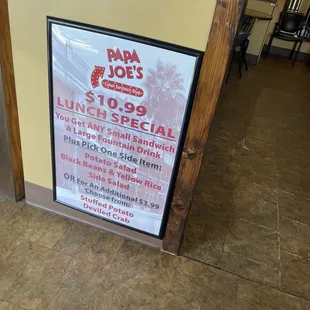 PAPA
JOE'S
$10.99
LUNCH SPECIAL
You Get ANY Small Sandwich
& Large Fountain Drink
Plus Pick One Side Item:
Potato Salad
Black Beans & Yellow Rice
Side Salad
OR For An Additional $3.99
Choose from:
Stuffed Potato
Deviled Crab